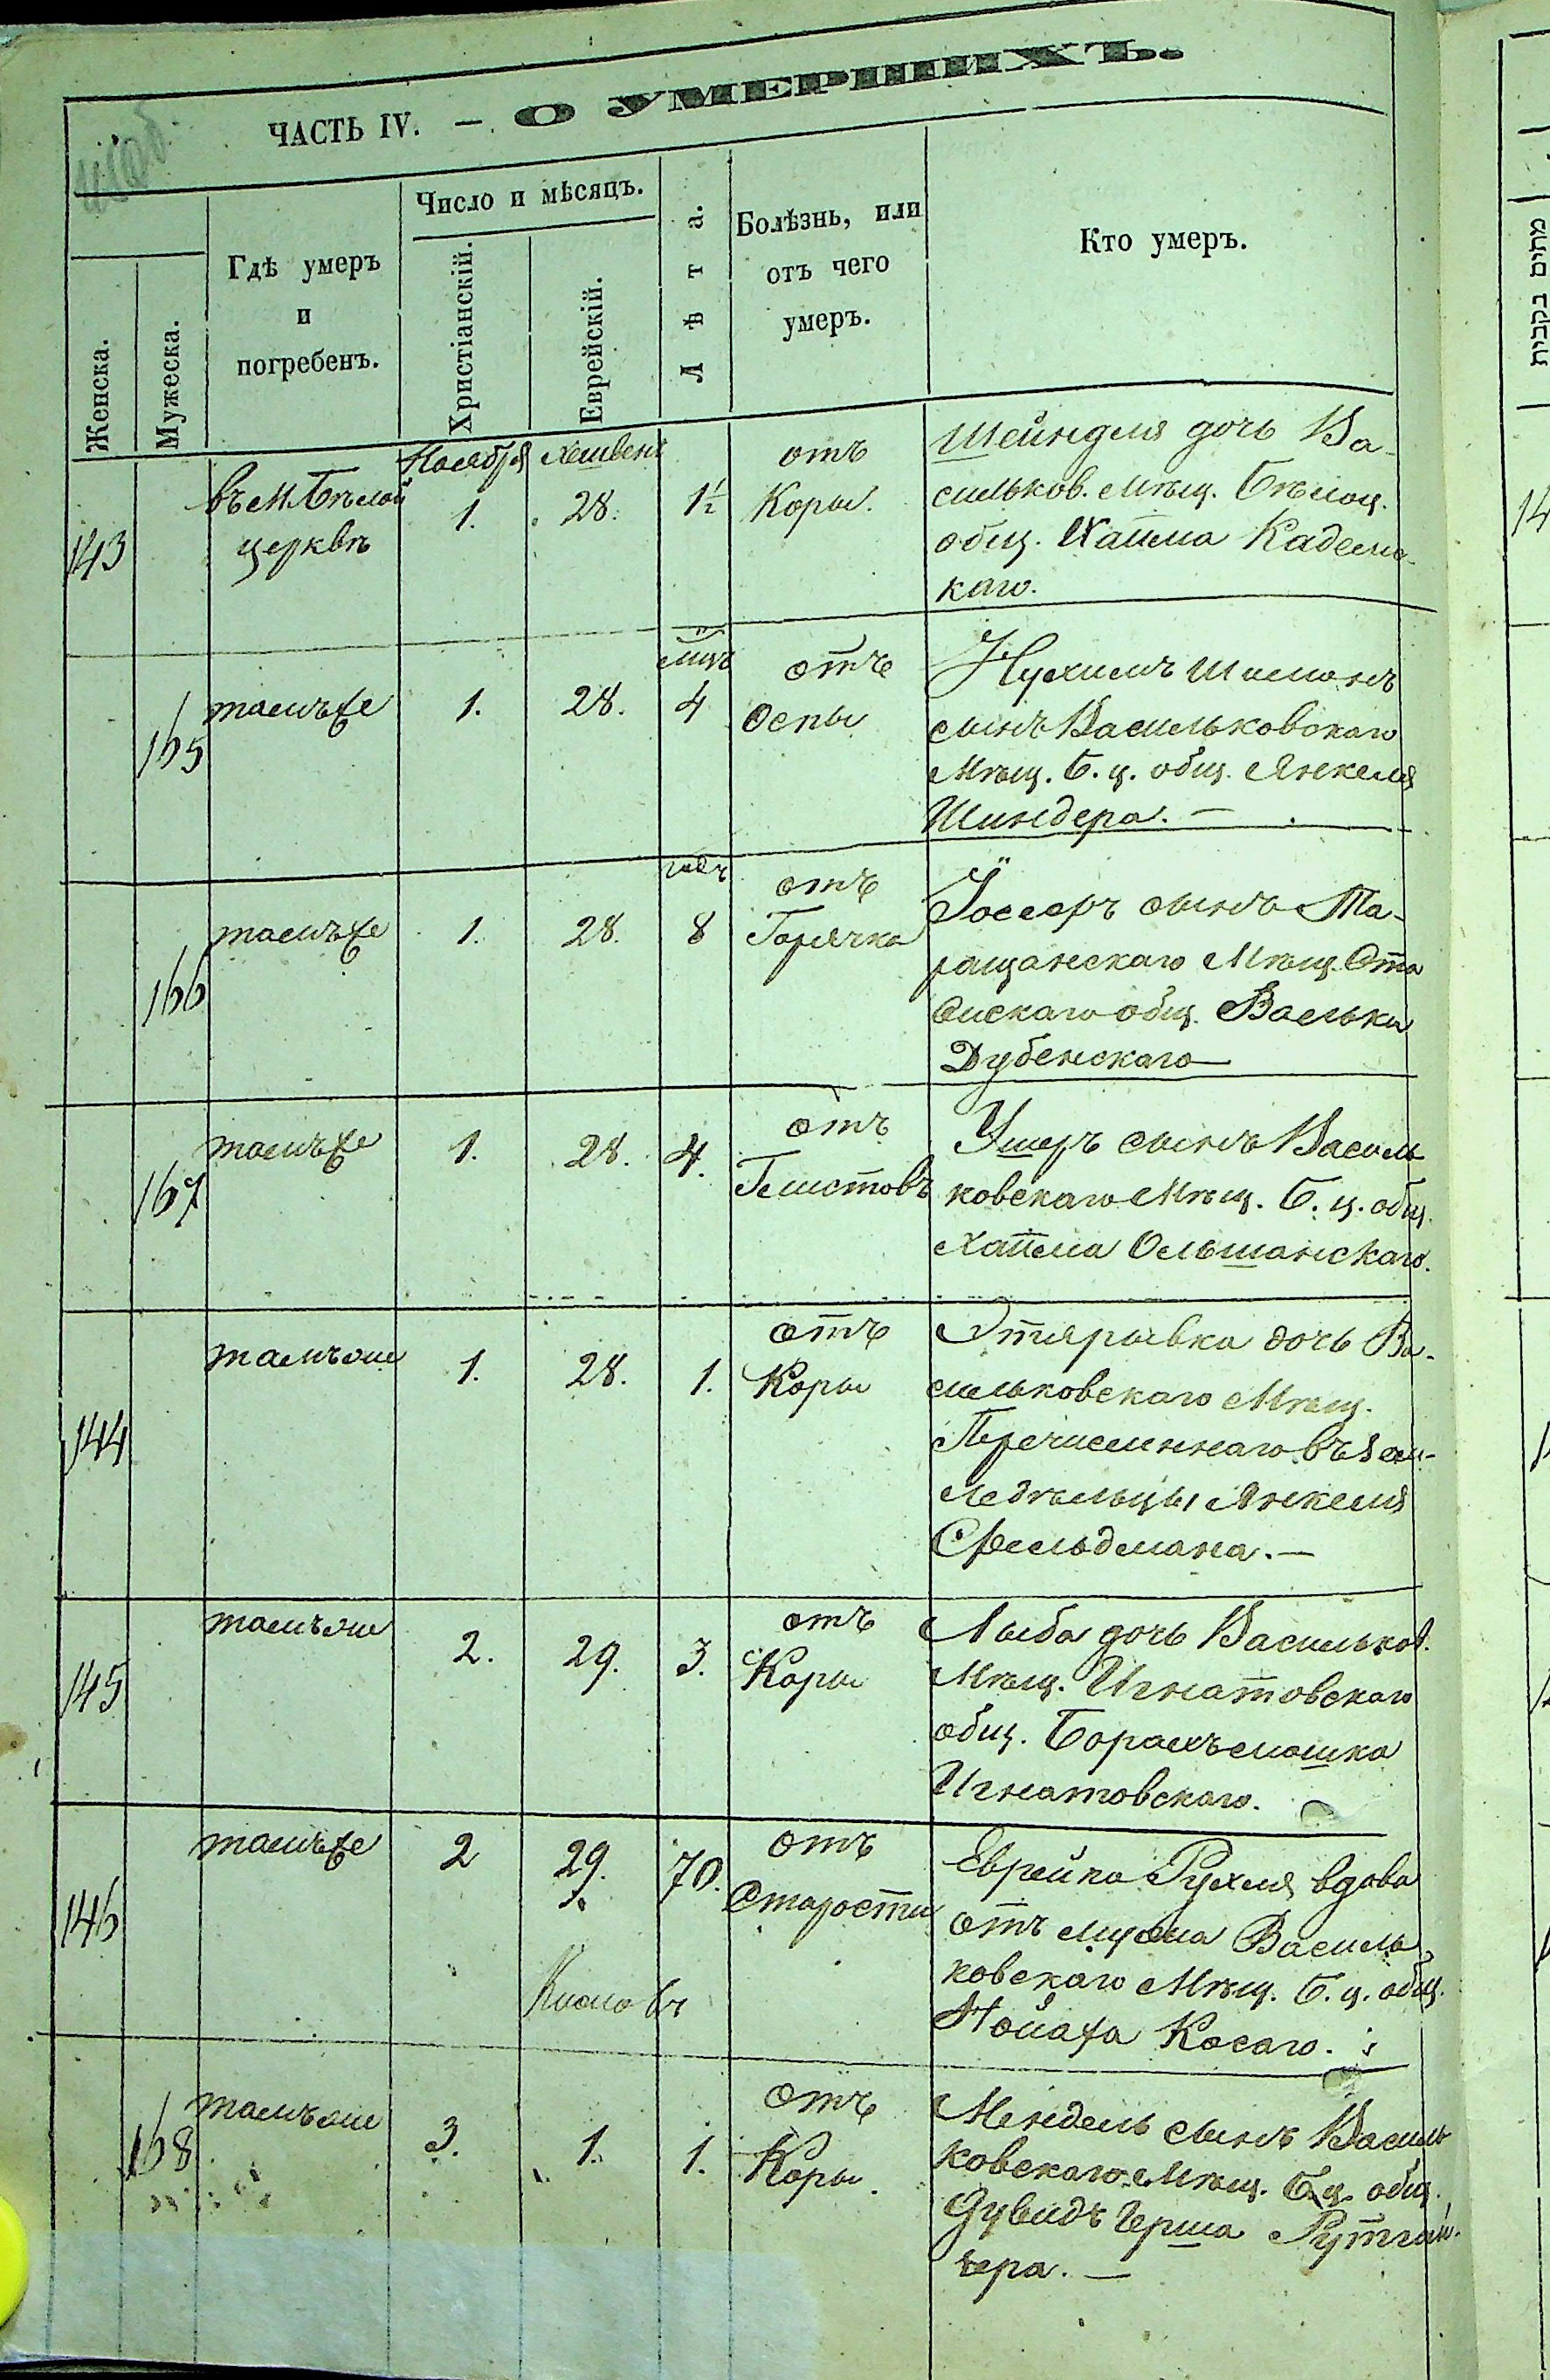 ЧАСТЬ IV. — О УМЕРШИХЪ.
Женска.
Мужеска.
Гдѣ умеръ
и
погребенъ.
Число и мѣсяцъ.
Христіанскій.
Еврейскій.
Лѣта.
Болѣзнь, или
отъ чего
умеръ.
Кто умеръ.
143
въ М. Бѣлой
церквѣ
Ноября
1.
Хешвенъ
28.
1½
отъ
Коры.
Шейндля дочь Ва-
сильков. Мѣщ. Бѣлоц.
общ. Хаима
каго.
165
тамъже
1.
28.
4
отъ
Оспы
Нухимъ Шимонъ
сынъ Васильковскаго
Мѣщ. Б. ц. общ. Янкеля
Шиндера. —
166
тамъже
1.
28.
8
отъ
Горячка
Іосеръ сынъ Та-
ращанскаго Мѣщ.
общ. Васьки
Дубенскаго
167
тамъже
1.
28.
4.
отъ
Глистовъ
Ушеръ сынъ Василь
ковскаго Мѣщ. Б. ц. общ.
Хаима Ольшанскаго.
144
тамъже
1.
28.
1.
отъ
Коры
дочь Ва-
сильковскаго Мѣщ.
Перечисленнаго въ Зем-
ледѣльцы Янкеля
Фельдмана. —
145
тамъже
2.
29.
3.
отъ
Коры
Лыба дочь Васильков.
Мѣщ. Игнатовскаго
общ. Борахъ Мошка
Игнатовскаго.
146
тамъже
2
29.
70.
отъ
Старости
Еврейка Рухля вдова
отъ мужа Василь
ковскаго Мѣщ. Б. ц. общ.
Косаго.
Кислевъ
168
тамъже
3.
1.
1.
отъ
Коры.
Мендель сынъ Василь
ковскаго Мѣщ. Б. ц. общ.
Дувидъ Герша
ера. —
מתים בקבית